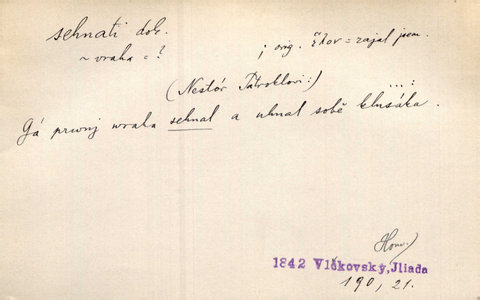 sehnati dok.
~ vraha = ?
; orig. ἕλον = zajal jsem.
(Nestór Patroklovi:)
Já prwnj wraha sehnal a uhnal sobě klusáka ...:.
Hom.)
1842 Vlčkovský, Jliada
190, 21.